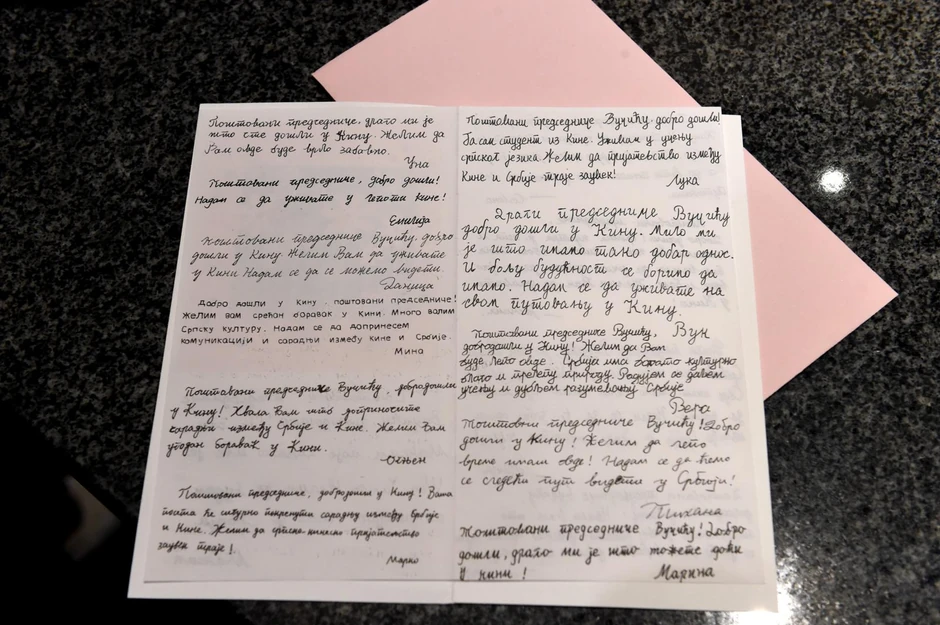 Поштовани председниче, драго ми је
што сте дошли у Кину. Желим да
Вам овде буде врло забавно.
Уна
Поштовани председниче, добро дошли!
Надам се да уживате у лепоти Кине!
Емилија
Поштовани председниче Вучићу, добро
дошли у Кину Желим Вам да уживате
у Кини Надам се да се можемо видети.
Даница
Добро дошли у Кину, поштовани председниче!
Желим вам срећан боравак у Кини. Много волим
Српску културу. Надам се да допринесем
комуникацији и сарадњи између кине и Србије.
Мина
Поштовани председниче Вучићу, добродошли
у Кину! Хвала Вам што доприносите
сарадњи између Србије и Кине. Желим Вам
угодан боравак у Кини.
Огњен
Поштовани председниче, добродошли у Кину! Ваша
посета ће сигурно покренути сарадњу између Србије
и Кине. Желим да српско-кинеско пријатељство
заувек траје!
Марко
Поштовани председниче Вучићу, добро дошли!
Ја сам студент из Кине. Уживам у учењу
српског језика Желим да пријатељство између
Кине и Србије траје заувек!
Лука
Драги председниче Вучићу
добро дошли у Кину. Мило ми
је што имамо тако добар однос.
И бољу будућности се боримо да
имамо. Надам се да уживате на
свом путовању у Кину.
Вук
Поштовани председниче Вучићу,
добродошли у Кину! Желим да Вам
буде лепо овде. Србија има богато културно
благо и прелепу природу. Радујем се даљем
учењу и дубљем разумевању Србије
Вера
Поштовни председниче Вучићу! Добро
дошли у Кину! Желим да лепо
време имам овде! Надам се да ћемо
се следећи пут видети у Србији!
Тихана
Поштовани председниче Вучићу! Добро
дошли, драго ми је што можете доћи
у Кини!
Марина